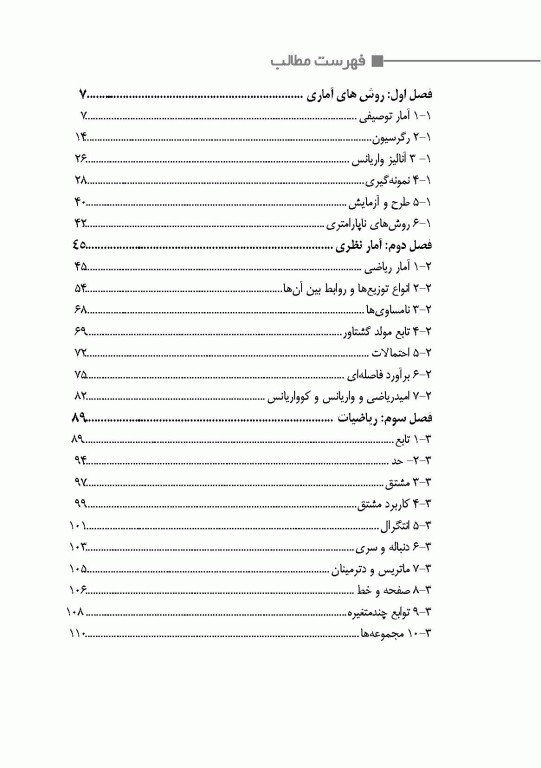 فهرست مطالب
فصل اول: روش های آماری ........ ۷
۱-۱ آمار توصیفی ........ ۷
۲-۱ رگرسیون ........ ۱۴
۳ -۱ آنالیز واریانس ........ ۲۶
۴-۱ نمونه‌گیری ........ ۲۸
۵-۱ طرح و آزمایش ........ ۴۰
۶-۱ روش‌های ناپارامتری ........ ۴۲
فصل دوم: آمار نظری ........ ۴۵
۱-۲ آمار ریاضی ........ ۴۵
۲-۲ انواع توزیع‌ها و روابط بین آن‌ها ........ ۵۴
۳-۲ نامساوی‌ها ........ ۶۸
۴-۲ تابع مولد گشتاور ........ ۶۹
۵-۲ احتمالات ........ ۷۲
۶-۲ برآورد فاصله‌ای ........ ۷۵
۷-۲ امیدریاضی و واریانس و کوواریانس ........ ۸۲
فصل سوم: ریاضیات ........ ۸۹
۱-۳ تابع ........ ۸۹
۲-۳- حد ........ ۹۴
۳-۳ مشتق ........ ۹۷
۴-۳ کاربرد مشتق ........ ۹۹
۵-۳ انتگرال ........ ۱۰۱
۶-۳ دنباله و سری ........ ۱۰۳
۷-۳ ماتریس و دترمینان ........ ۱۰۵
۸-۳ صفحه و خط ........ ۱۰۶
۹-۳ توابع چندمتغیره ........ ۱۰۸
۱۰-۳ مجموعه‌ها ........ ۱۱۰